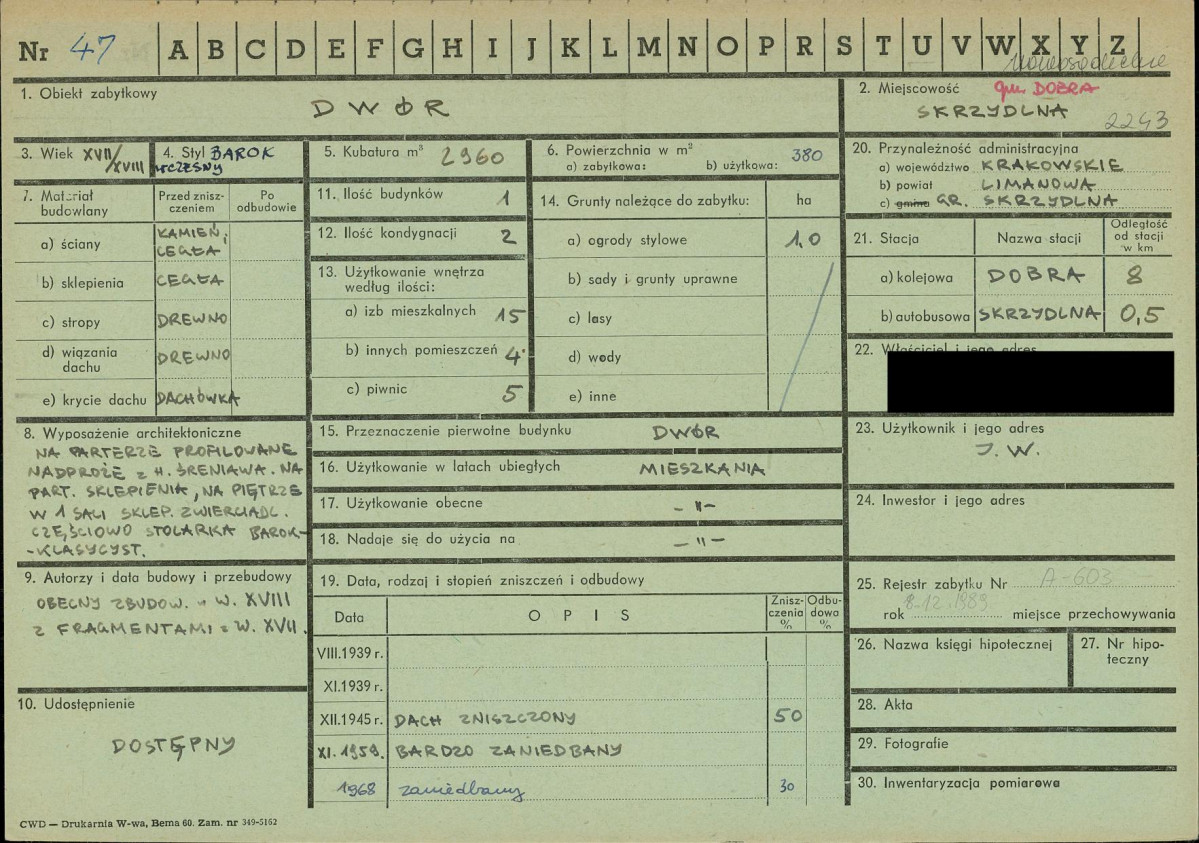 Nr 47 A B C D E F G H I J K L M N O P R S T U V W X Y Z
nowosądeckie
1. Obiekt zabytkowy
DWÓR
2. Miejscowość gm. DOBRA
SKRZYDLNA 2243
3. Wiek XVII/XVIII
4. Styl BAROK
WCZESNY
5. Kubatura m³ 2960
6. Powierzchnia w m²
a) zabytkowa: b) użytkowa: 380
7. Materiał budowlany
Przed zniszczeniem
Po odbudowie
a) ściany KAMIEŃ, CEGŁA
b) sklepienia CEGŁA
c) stropy DREWNO
d) wiązania dachu DREWNO
e) krycie dachu DACHÓWKA
11. Ilość budynków 1
12. Ilość kondygnacji 2
13. Użytkowanie wnętrza
według ilości:
a) izb mieszkalnych 15
b) innych pomieszczeń 4
c) piwnic 5
14. Grunty należące do zabytku: ha
a) ogrody stylowe 1,0
b) sady i grunty uprawne
c) lasy
d) wody
e) inne
20. Przynależność administracyjna
a) województwo KRAKOWSKIE
b) powiat LIMANOWA
c) gmina GR. SKRZYDLNA
21. Stacja
Nazwa stacji
Odległość od stacji w km
a) kolejowa DOBRA 8
b) autobusowa SKRZYDLNA 0,5
22. Właściciel i jego adres
8. Wyposażenie architektoniczne
NA PARTERZE PROFILOWANE
NADPROŻE z H. ŚRENIAWA. NA
PART. SKLEPIENIA, NA PIĘTRZE
W 1 SALI SKLEP. ZWIERCIADL.
CZĘŚCIOWO STOLARKA BAROK-
-KLASYCYST.
15. Przeznaczenie pierwotne budynku DWÓR
16. Użytkowanie w latach ubiegłych MIESZKANIA
17. Użytkowanie obecne - " -
18. Nadaje się do użycia na - " -
23. Użytkownik i jego adres
J. W.
24. Inwestor i jego adres
9. Autorzy i data budowy i przebudowy
OBECNY ZBUDOW. w W. XVIII
Z FRAGMENTAMI z W. XVII.
10. Udostępnienie
DOSTĘPNY
19. Data, rodzaj i stopień zniszczeń i odbudowy
Data
OPIS
Zniszczenia %
Odbudowa %
VIII.1939 r.
XI.1939 r.
XII.1945 r. DACH ZNISZCZONY 50
XI.1959. BARDZO ZANIEDBANY
1968 zaniedbany 30
25. Rejestr zabytku Nr A-603
rok 8.12.1989 miejsce przechowywania
26. Nazwa księgi hipotecznej
27. Nr hipoteczny
28. Akta
29. Fotografie
30. Inwentaryzacja pomiarowa
CWD — Drukarnia W-wa, Bema 60. Zam. nr 349-5162